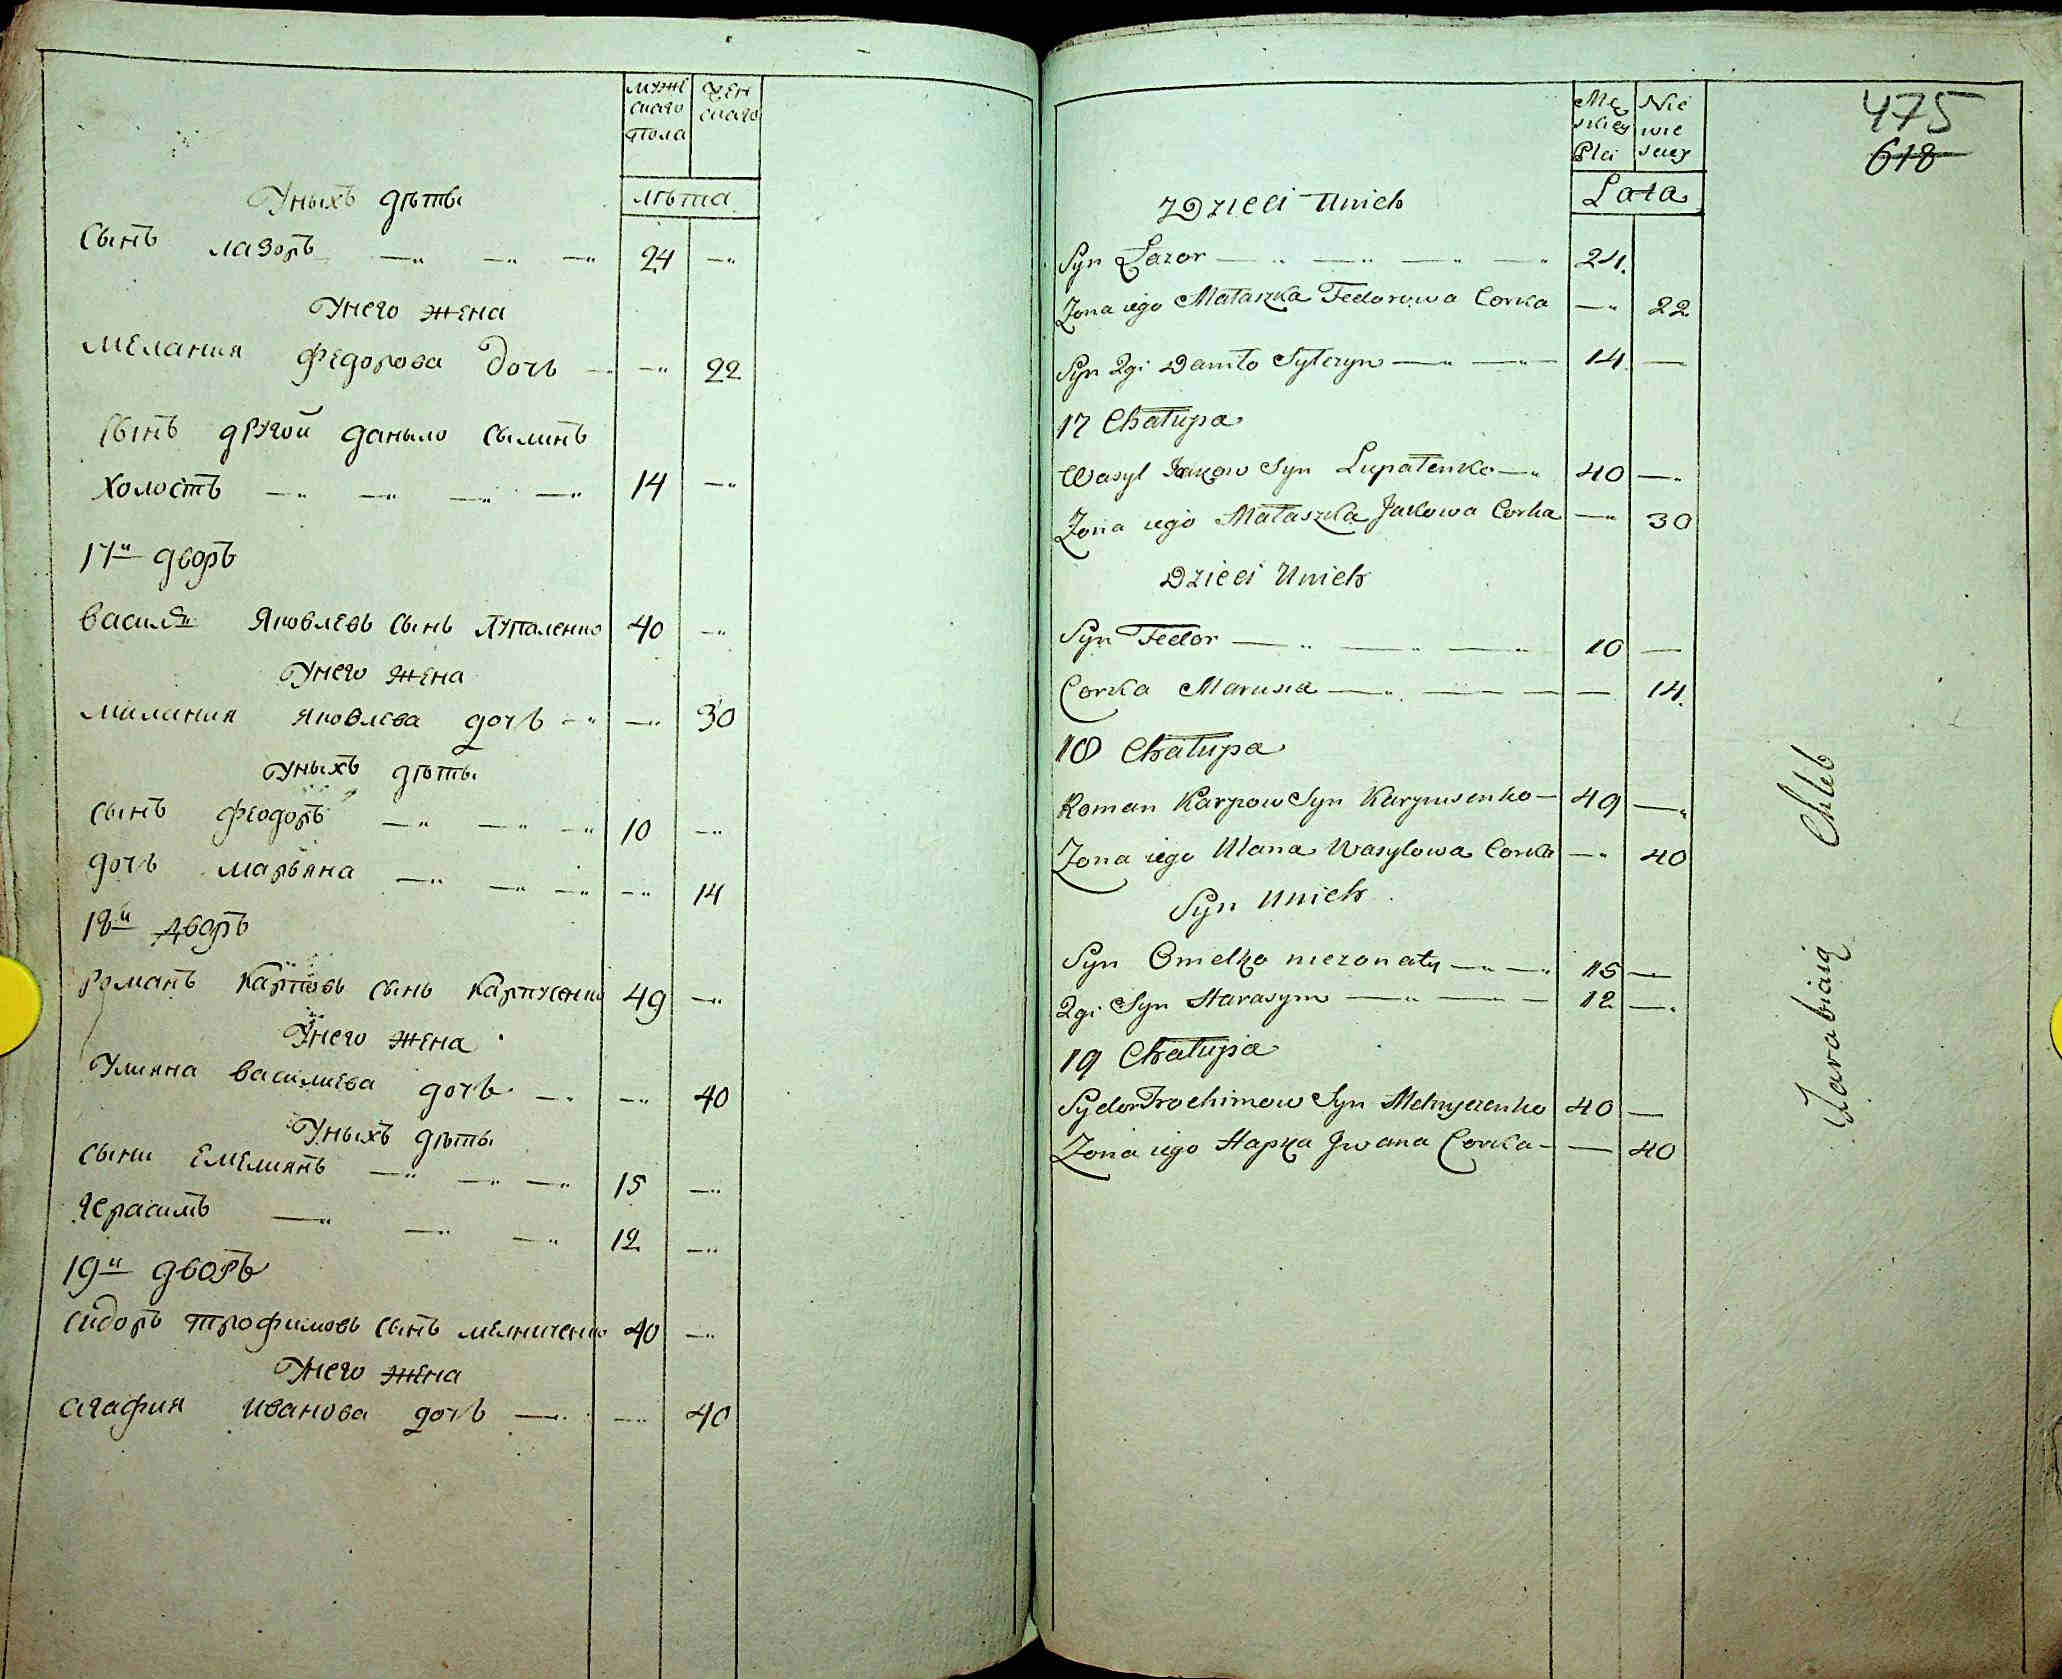 мужескаго пола
женскаго
лѣта
Уныхъ дѣты
сынъ лазоръ — „ — „ — „ 24 — „
Унего жена
мелания федорова дочь — — „ 22
сынъ другой даныло сылинъ
холостъ — „ — „ — „ — „ 14 — „
17й дворъ
василй яковлевъ сынъ лупаленко 40 — „
Унего жена
милания яковлева дочь — „ — „ 30
уныхъ дѣты
сынъ феодоръ — „ — „ — „ 10 — „
дочь марьяна — „ — „ — „ — „ 14
18й дворъ
романъ карповъ сынъ карпусенко 49 — „
Унего жена
Улияна василиева дочь — „ — „ 40
Уныхъ дѣты
сыни емелиянъ — „ — „ — „ 15 — „
герасимъ — „ — „ — „ 12 — „
19й дворъ
сидоръ трофимовъ сынъ мелниченко 40 — „
Унего жена
агафия иванова дочь — „ — „ 40
Męskiey Płci
Niewieściey
Lata
475
618
Dzieci Unich
Syn Łazor — „ — „ — „ — „ 24.
Żona iego Małaszka Fedorowa Corka — „ 22
Syn 2gi Daniło Syłczyn — „ — „ 14. —
17 Chałupa
Wasyl Jakow Syn Łupałenko — „ 40 — „
Żona iego Małaszka Jakowa Corka — „ 30
Dzieci Unich
Syn Fedor — „ — „ — „ 10 —
Corka Marusia — „ — — — 14.
18 Chałupa
Roman Karpow Syn Karpusenko — 49 — „
Żona iego Ulana Wasylowa Corka — „ 40
Syn Unich
Syn Omelko niezonaty — „ — „ 15 —
2gi Syn Harasym — „ — — 12 — „
19 Chałupa
Sydor Trochimow Syn Melnyczenko 40 —
Żona iego Hapka Jwana Corka — — 40
Zarabiaią Chleb